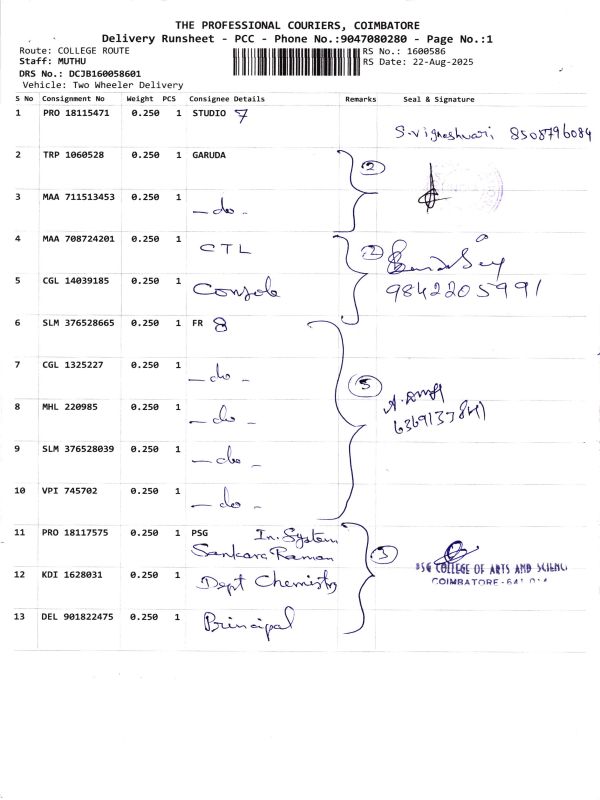 THE PROFESSIONAL COURIERS, COIMBATORE
Delivery Runsheet - PCC - Phone No.:9047080280 - Page No.:1
Route: COLLEGE ROUTE RS No.: 1600586
Staff: MUTHU RS Date: 22-Aug-2025
DRS No.: DCJB160058601
Vehicle: Two Wheeler Delivery
S No Consignment No Weight PCS Consignee Details Remarks Seal & Signature
1 PRO 18115471 0.250 1 STUDIO 7
S.vigneshwari 8508796084
2 TRP 1060528 0.250 1 GARUDA
2
3 MAA 711513453 0.250 1 - do -
4 MAA 708724201 0.250 1 CTL
2
5 CGL 14039185 0.250 1 Console 9842205991
6 SLM 376528665 0.250 1 FR 8
7 CGL 1325227 0.250 1 - do -
5
8 MHL 220985 0.250 1 - do -
9 SLM 376528039 0.250 1 - do -
10 VPI 745702 0.250 1 - do -
11 PRO 18117575 0.250 1 PSG In. System
Sankara Raman
3
PSG COLLEGE OF ARTS AND SCIENCE
COIMBATORE-641 014
12 KDI 1628031 0.250 1 Dept Chemistry
13 DEL 901822475 0.250 1 Principal